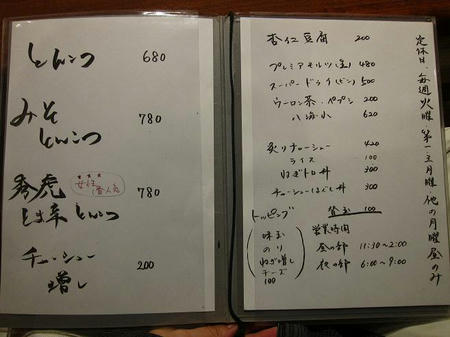 とんこつ 680
みそ
とんこつ 780
秀虎
女性
一番人気
とま辛とんこつ 780
チャーシュー
増し 200
杏仁豆腐 200
プレミアモルツ(生) 480
スーパードライ(ビン) 500
ウーロン茶・ペプシ 200
八海山 620
炙りチャーシュー 420
ライス 100
ねぎトロ丼 300
チャーシューほぐし丼 300
トッピング 替玉 100
味玉
のり
ねぎ増し
チーズ
100
営業時間
昼の部 11:30~2:00
夜の部 6:00~9:00
定休日、毎週火曜 第一、三月曜・他の月曜昼のみ